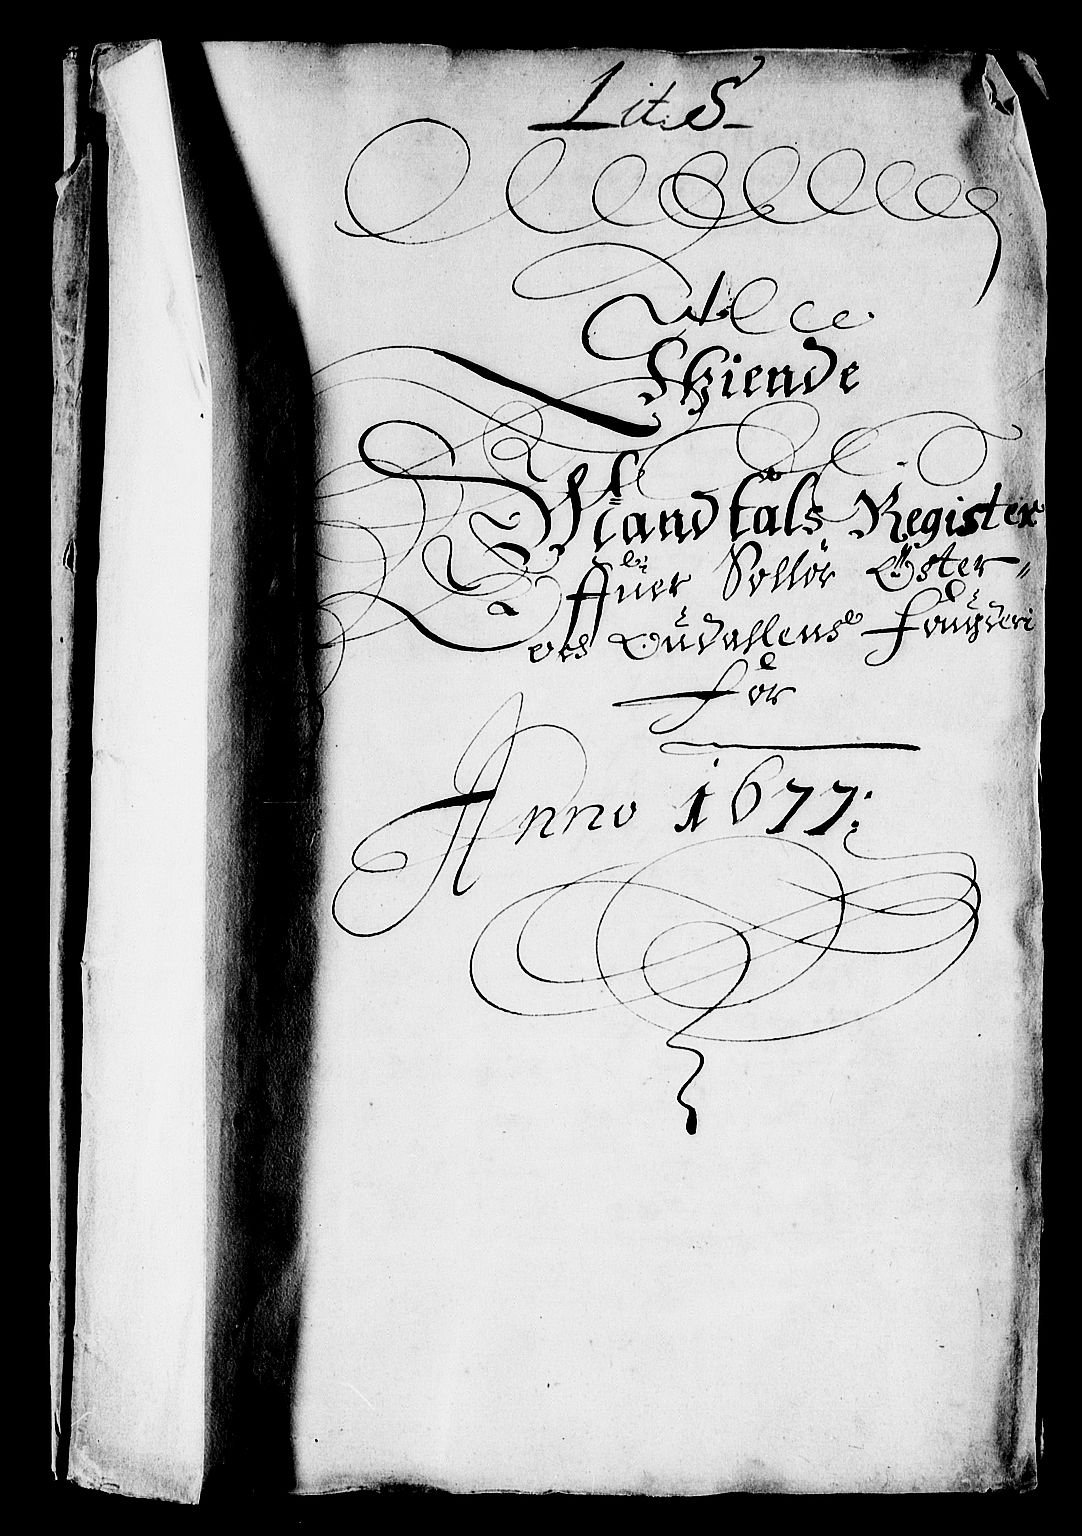 Lit: S
Tiende
Mandtals Register
Offuer Sollör Öster-
och Oudallens fougderi
for
Anno 1677: